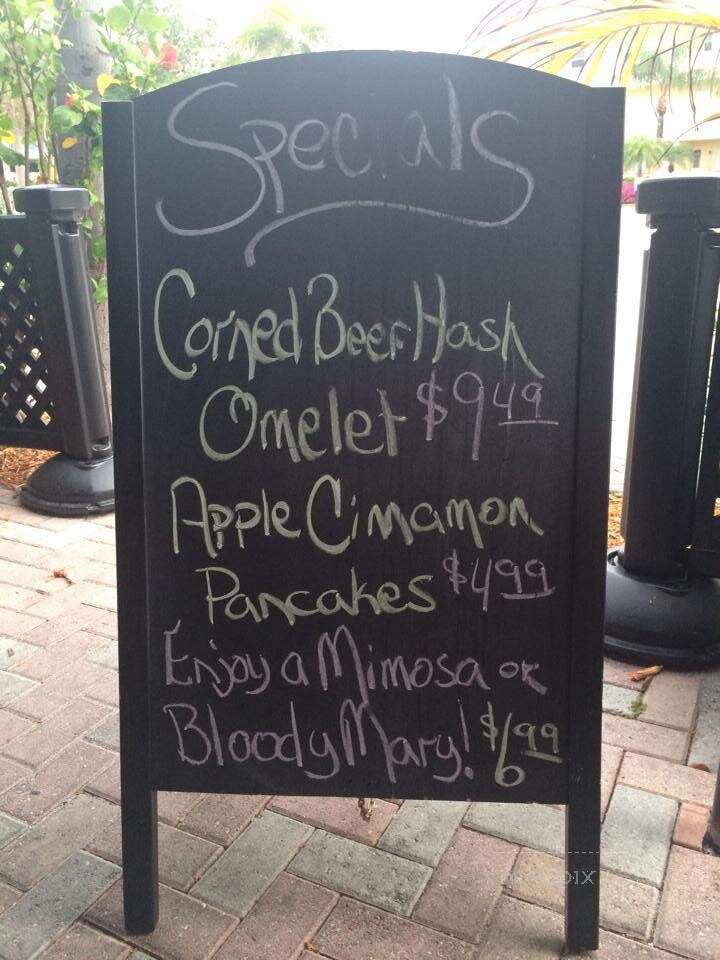 Specials
Corned Beef Hash
Omelet $9.49
Apple Cinnamon
Pancakes $4.99
Enjoy a Mimosa or
Bloody Mary! $6.99